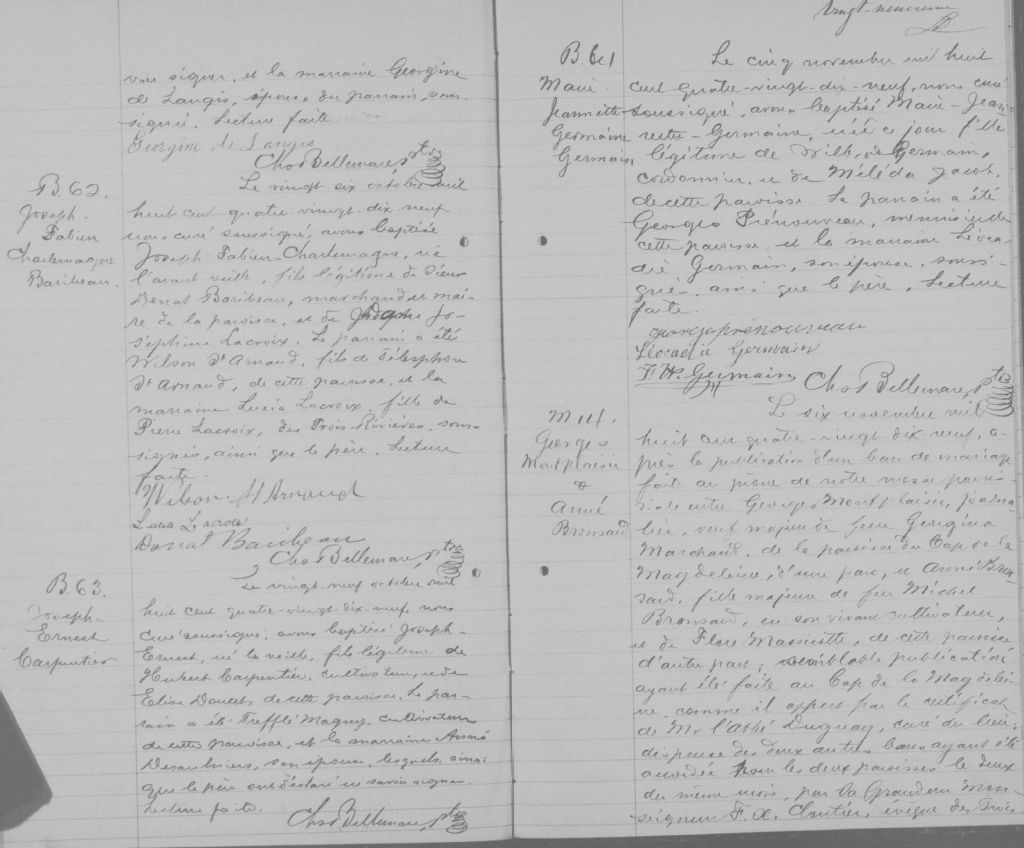 voir signer, et la marraine Georgine
de Langis, épouse du parrain, sous-
signée. Lecture faite
Georgine de Langis
Chs Bellemare, ptre
B. 62.
Joseph-
Fabien
Charlemagne
Baribeau.
Le vingt six octobre mil
huit cent quatre-vingt-dix neuf
nous curé soussigné, avons baptisé
Joseph-Fabien-Charlemagne, né
l'avant veille, fils légitime de Sieur
Donat Baribeau, marchand et mai-
re de la paroisse, et de Jo-
séphine Lacroix. Le parrain a été
Wilson St Arnaud, fils de Télesphore
St Arnaud, de cette paroisse, et la
marraine Lucia Lacroix, fille de
Pierre Lacroix, des Trois-Rivières, sous-
signés, ainsi que le père. Lecture
faite.
Wilson St Arnaud
Lucia Lacroix
Donat Baribeau
Chs Bellemare, ptre
B. 63.
Joseph-
Ernest
Carpentier
Le vingt-neuf octobre mil
huit cent quatre-vingt-dix-neuf, nous
curé soussigné, avons baptisé Joseph-
Ernest, né la veille, fils légitime de
Hubert Carpentier, cultivateur, et de
Elise Doucet, de cette paroisse. Le par-
rain a été Trefflé Magny, cultivateur
de cette paroisse, et la marraine Anna
Desaulniers, son épouse, lesquels, ainsi
que le père ont déclaré ne savoir signer.
Lecture faite.
Chs Bellemare, ptre
vingt-neuvième
B. 61
Marie-
Jeannette
Germaine
Germain
Le cinq novembre mil huit
cent quatre-vingt-dix-neuf, nous curé
soussigné, avons baptisé Marie-Jean-
nette-Germaine, née ce jour, fille
légitime de Germain,
cordonnier, et de Méléda Jacob,
de cette paroisse. Le parrain a été
Georges Prénouveau, menuisier de
cette paroisse, et la marraine Léoca-
die Germain, son épouse, soussi-
gnés, ainsi que le père. Lecture
faite.
George prenouveau
Léocadie Germain
Germain
Chs Bellemare, ptre
M. 14.
Georges
Montplaisir
&
Anné
Bronsard
Le six novembre mil
huit cent quatre-vingt-dix-neuf, a-
près la publication d'un ban de mariage
faite au prône de notre messe parois-
siale entre Georges Montplaisir, journa-
lier, veuf majeur de feue Georgina
Marchand, de la paroisse du Cap de la
Magdeleine, d'une part, et Anné Bron-
sard, fille majeure de feu Michel
Bronsard, en son vivant cultivateur,
et de Flore Massicotte, de cette paroisse
d'autre part; semblable publication
ayant été faite au Cap de la Magdelei-
ne, comme il appert par le certificat
de Mr l'abbé Duguay, curé du lieu;
dispense des deux autres bans ayant été
accordée pour les deux paroisses le deux
du même mois, par Sa Grandeur Mon-
seigneur F. X. Cloutier, évêque des Trois